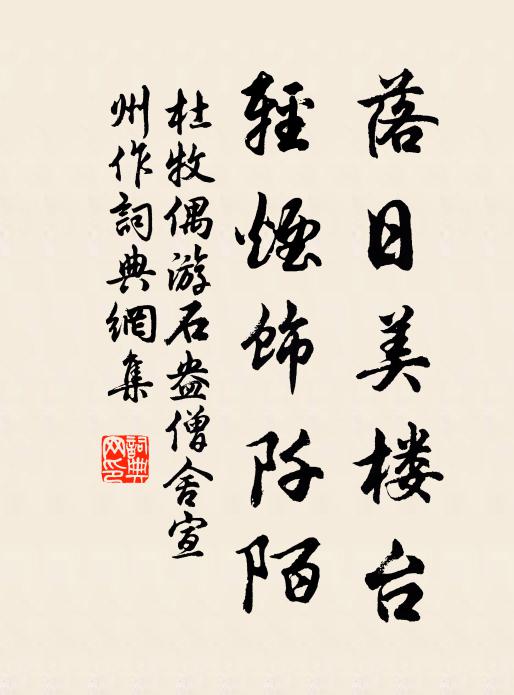 落日美楼台
輕煙飾阡陌
杜牧偶游石盎僧舍宣
州作詞典網集
詞典网印